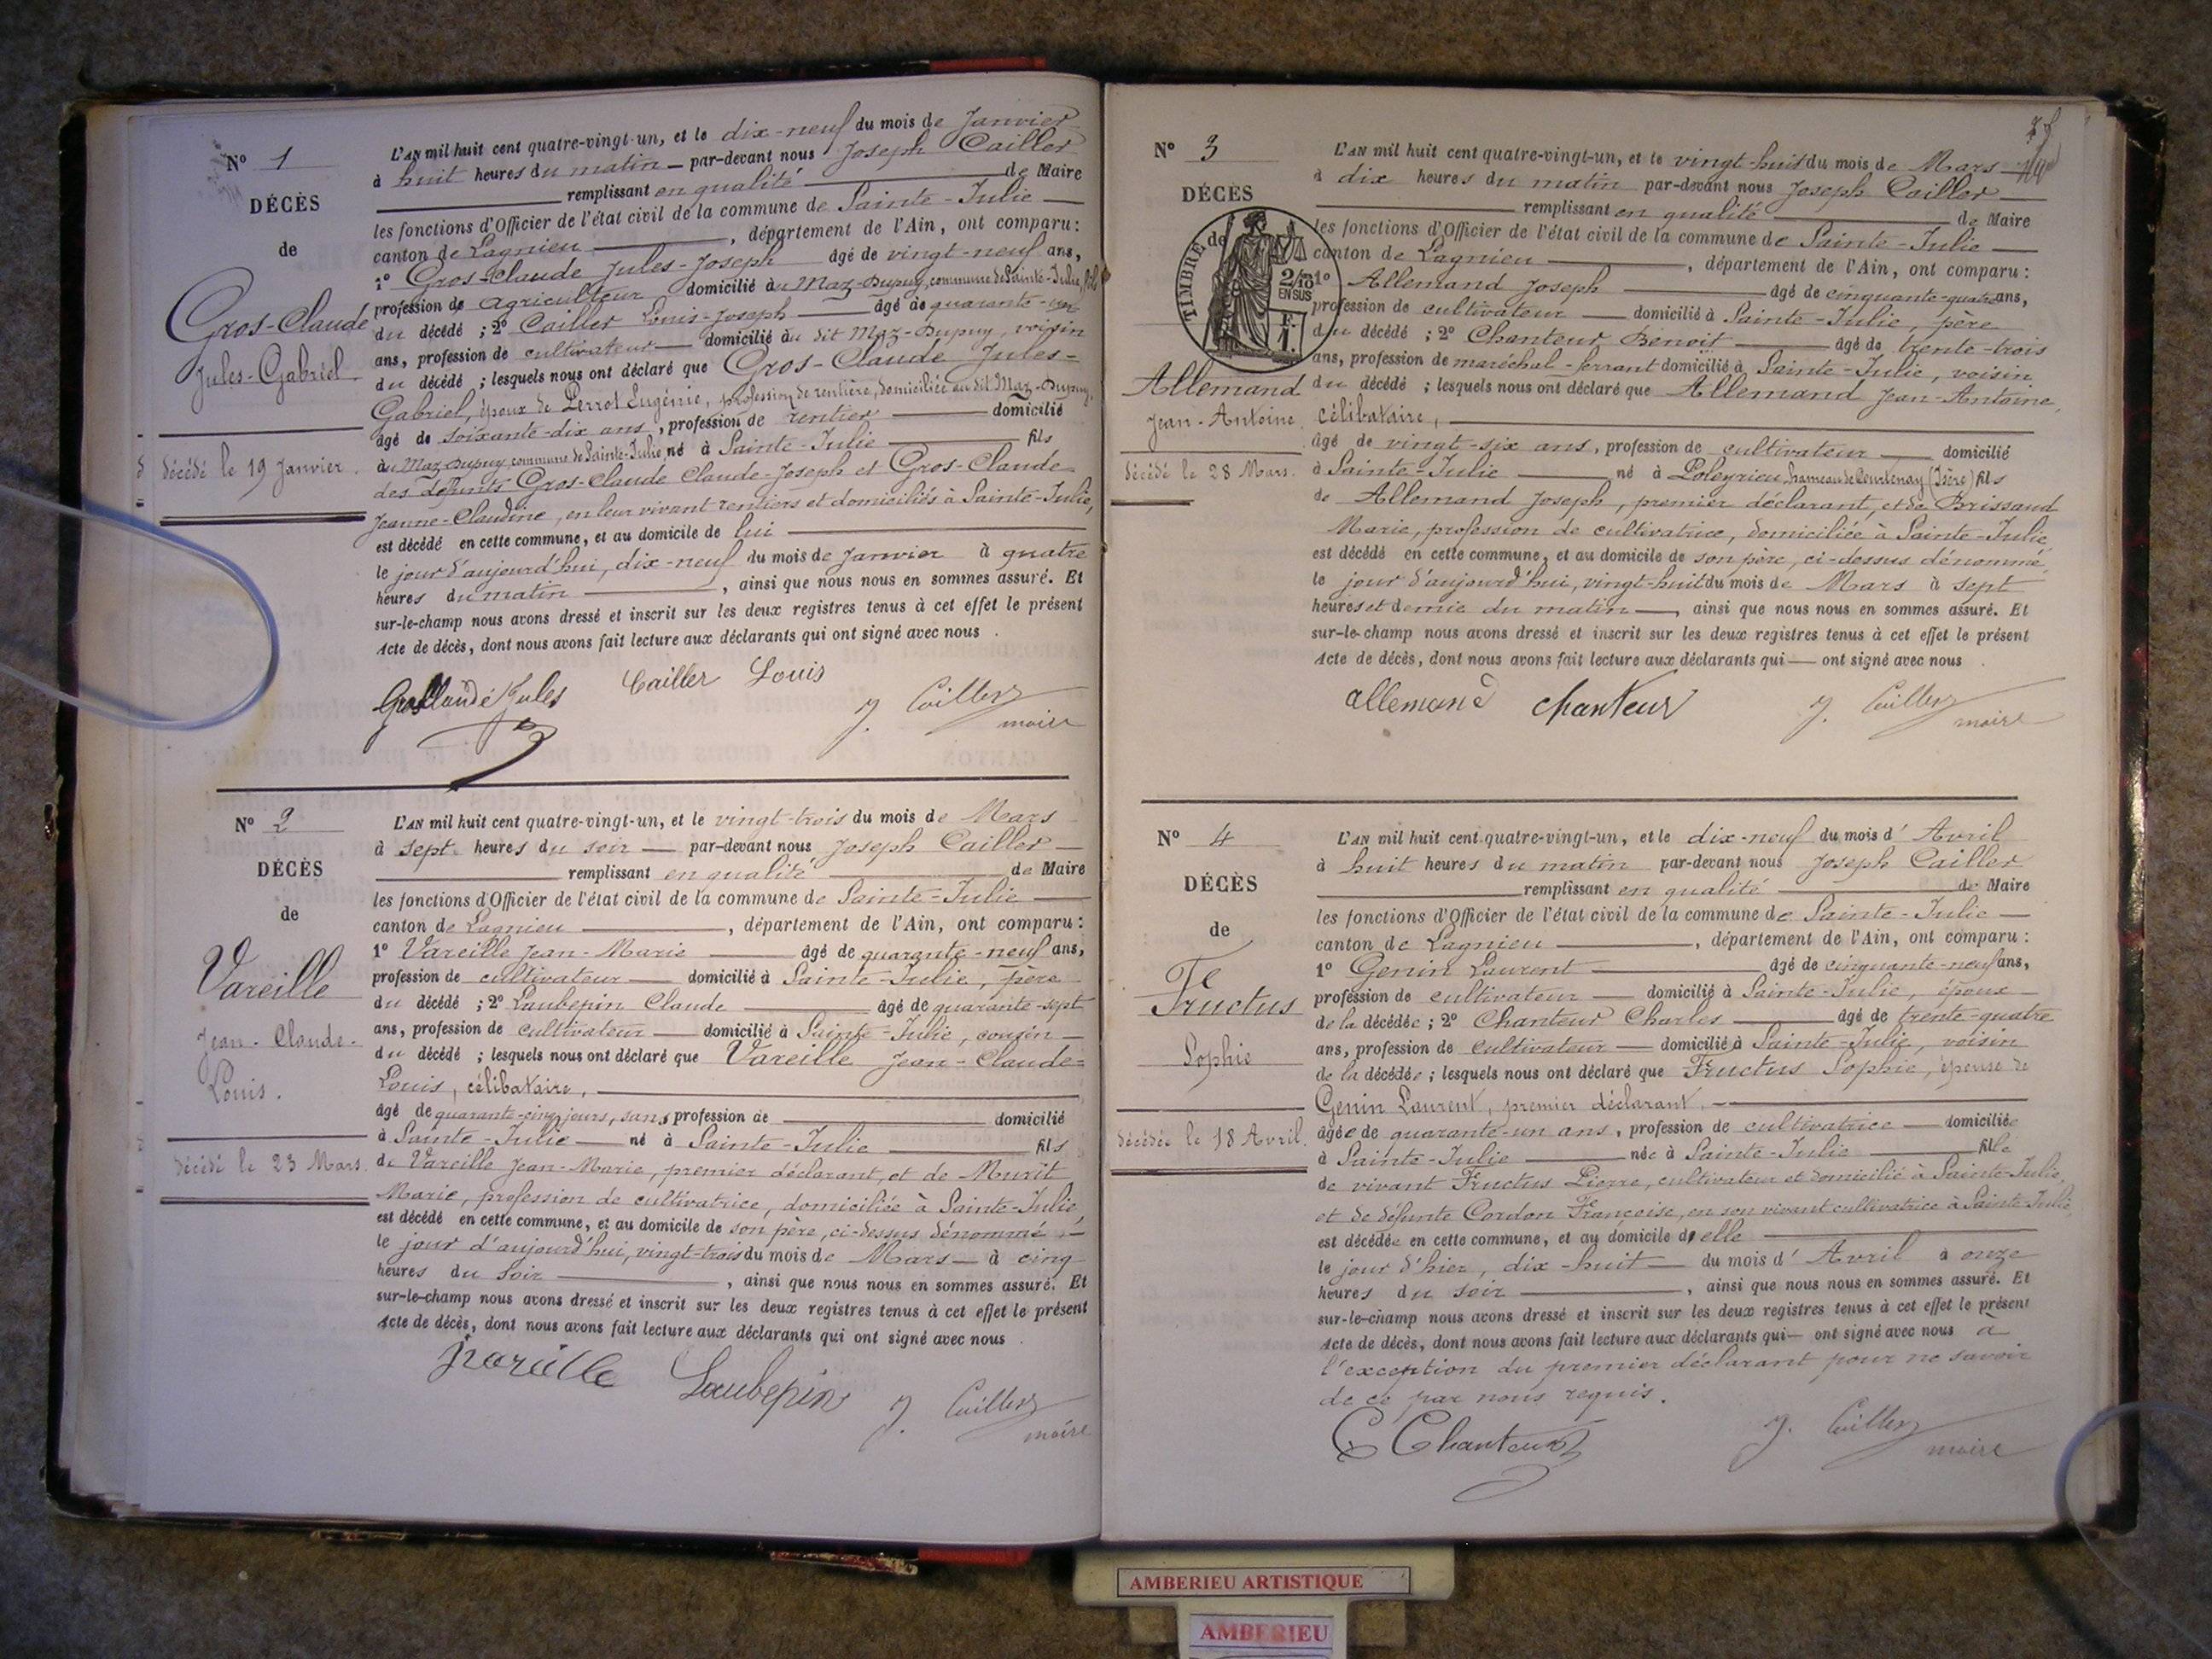 N° 1
DÉCÈS
de
Gros-Claude
Jules-Gabriel
décédé le 19 Janvier.
L'AN mil huit cent quatre-vingt-un, et le dix-neuf du mois de Janvier
à huit heures du matin — par-devant nous Joseph Cailler
remplissant en qualité de Maire
les fonctions d'Officier de l'état civil de la commune de Sainte-Julie
canton de Lagnieu, département de l'Ain, ont comparu :
1° Gros-Claude Jules-Joseph âgé de vingt-neuf ans,
profession de agriculteur domicilié au Maz-Dupuy, commune de Sainte-Julie, fils
du décédé ; 2° Cailler Louis-Joseph âgé de quarante-un
ans, profession de cultivateur domicilié au dit Maz-Dupuy, voisin
du décédé ; lesquels nous ont déclaré que Gros-Claude Jules-
Gabriel, époux de Perrot Eugénie, profession de rentière, domiciliée au dit Maz-Dupuy,
âgé de soixante-dix ans, profession de rentier domicilié
au Maz-Dupuy, commune de Sainte-Julie, né à Sainte-Julie fils
des défunts Gros-Claude Claude-Joseph et Gros-Claude
Jeanne-Claudine, en leur vivant rentiers et domiciliés à Sainte-Julie,
est décédé en cette commune, et au domicile de lui
le jour d'aujourd'hui, dix-neuf du mois de Janvier à quatre
heures du matin, ainsi que nous nous en sommes assuré. Et
sur-le-champ nous avons dressé et inscrit sur les deux registres tenus à cet effet le présent
Acte de décès, dont nous avons fait lecture aux déclarants qui ont signé avec nous.
Grosclaude Jules Cailler Louis J. Cailler
maire
N° 2
DÉCÈS
de
Vareille
Jean-Claude-
Louis.
décédé le 23 Mars.
L'AN mil huit cent quatre-vingt-un, et le vingt-trois du mois de Mars
à sept heures du soir — par-devant nous Joseph Cailler
remplissant en qualité de Maire
les fonctions d'Officier de l'état civil de la commune de Sainte-Julie
canton de Lagnieu, département de l'Ain, ont comparu :
1° Vareille Jean-Marie âgé de quarante-neuf ans,
profession de cultivateur domicilié à Sainte-Julie, père
du décédé ; 2° Laubepin Claude âgé de quarante-sept
ans, profession de cultivateur domicilié à Sainte-Julie, cousin
du décédé ; lesquels nous ont déclaré que Vareille Jean-Claude-
Louis, célibataire,
âgé de quarante-cinq jours, sans profession de domicilié
à Sainte-Julie né à Sainte-Julie fils
de Vareille Jean-Marie, premier déclarant, et de Murit
Marie, profession de cultivatrice, domiciliée à Sainte-Julie,
est décédé en cette commune, et au domicile de son père, ci-dessus dénommé,
le jour d'aujourd'hui, vingt-trois du mois de Mars à cinq
heures du soir, ainsi que nous nous en sommes assuré. Et
sur-le-champ nous avons dressé et inscrit sur les deux registres tenus à cet effet le présent
Acte de décès, dont nous avons fait lecture aux déclarants qui ont signé avec nous.
Vareille Laubepin J. Cailler
maire
N° 3
DÉCÈS
TIMBRE de
2/10
EN SUS
F
1.
Allemand
Jean-Antoine
décédé le 28 Mars.
L'AN mil huit cent quatre-vingt-un, et le vingt-huit du mois de Mars
à dix heures du matin par-devant nous Joseph Cailler
remplissant en qualité de Maire
les fonctions d'Officier de l'état civil de la commune de Sainte-Julie
canton de Lagnieu, département de l'Ain, ont comparu :
1° Allemand Joseph âgé de cinquante-quatre ans,
profession de cultivateur domicilié à Sainte-Julie, père
du décédé ; 2° Chanteur Benoit âgé de trente-trois
ans, profession de maréchal-ferrant domicilié à Sainte-Julie, voisin
du décédé ; lesquels nous ont déclaré que Allemand Jean-Antoine,
célibataire,
âgé de vingt-six ans, profession de cultivateur domicilié
à Sainte-Julie né à Poleyrieu, hameau de Courtenay (Isère) fils
de Allemand Joseph, premier déclarant, et de Brissaud
Marie, profession de cultivatrice, domiciliée à Sainte-Julie
est décédé en cette commune, et au domicile de son père, ci-dessus dénommé,
le jour d'aujourd'hui, vingt-huit du mois de Mars à sept
heures et demie du matin, ainsi que nous nous en sommes assuré. Et
sur-le-champ nous avons dressé et inscrit sur les deux registres tenus à cet effet le présent
Acte de décès, dont nous avons fait lecture aux déclarants qui — ont signé avec nous.
allemand chanteur J. Cailler
maire
N° 4
DÉCÈS
de
Fructus
Sophie
décédée le 18 Avril.
L'AN mil huit cent quatre-vingt-un, et le dix-neuf du mois d'Avril
à huit heures du matin par-devant nous Joseph Cailler
remplissant en qualité de Maire
les fonctions d'Officier de l'état civil de la commune de Sainte-Julie
canton de Lagnieu, département de l'Ain, ont comparu :
1° Genin Laurent âgé de cinquante-neuf ans,
profession de cultivateur domicilié à Sainte-Julie, époux
de la décédée ; 2° Chanteur Charles âgé de trente-quatre
ans, profession de cultivateur domicilié à Sainte-Julie, voisin
de la décédée ; lesquels nous ont déclaré que Fructus Sophie, épouse de
Genin Laurent, premier déclarant,
âgée de quarante-un ans, profession de cultivatrice domiciliée
à Sainte-Julie née à Sainte-Julie fille
de vivant Fructus Pierre, cultivateur et domicilié à Sainte-Julie,
et de défunte Cordon Françoise, en son vivant cultivatrice à Sainte-Julie,
est décédée en cette commune, et au domicile d'elle
le jour d'hier, dix-huit du mois d'Avril à onze
heures du soir, ainsi que nous nous en sommes assuré. Et
sur-le-champ nous avons dressé et inscrit sur les deux registres tenus à cet effet le présent
Acte de décès, dont nous avons fait lecture aux déclarants qui — ont signé avec nous à
l'exception du premier déclarant pour ne savoir
de ce par nous requis.
C Chanteur J. Cailler
maire
AMBERIEU ARTISTIQUE
AMBERIEU